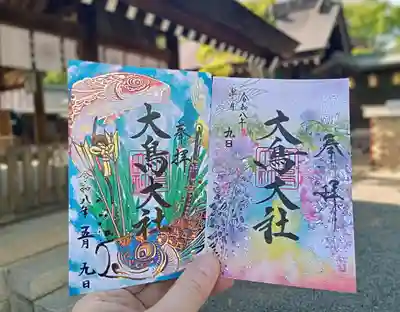 奉拝
大鳥大社
令和八年
五月
九日
奉拝
大鳥大社
令和八年
皐月
九日